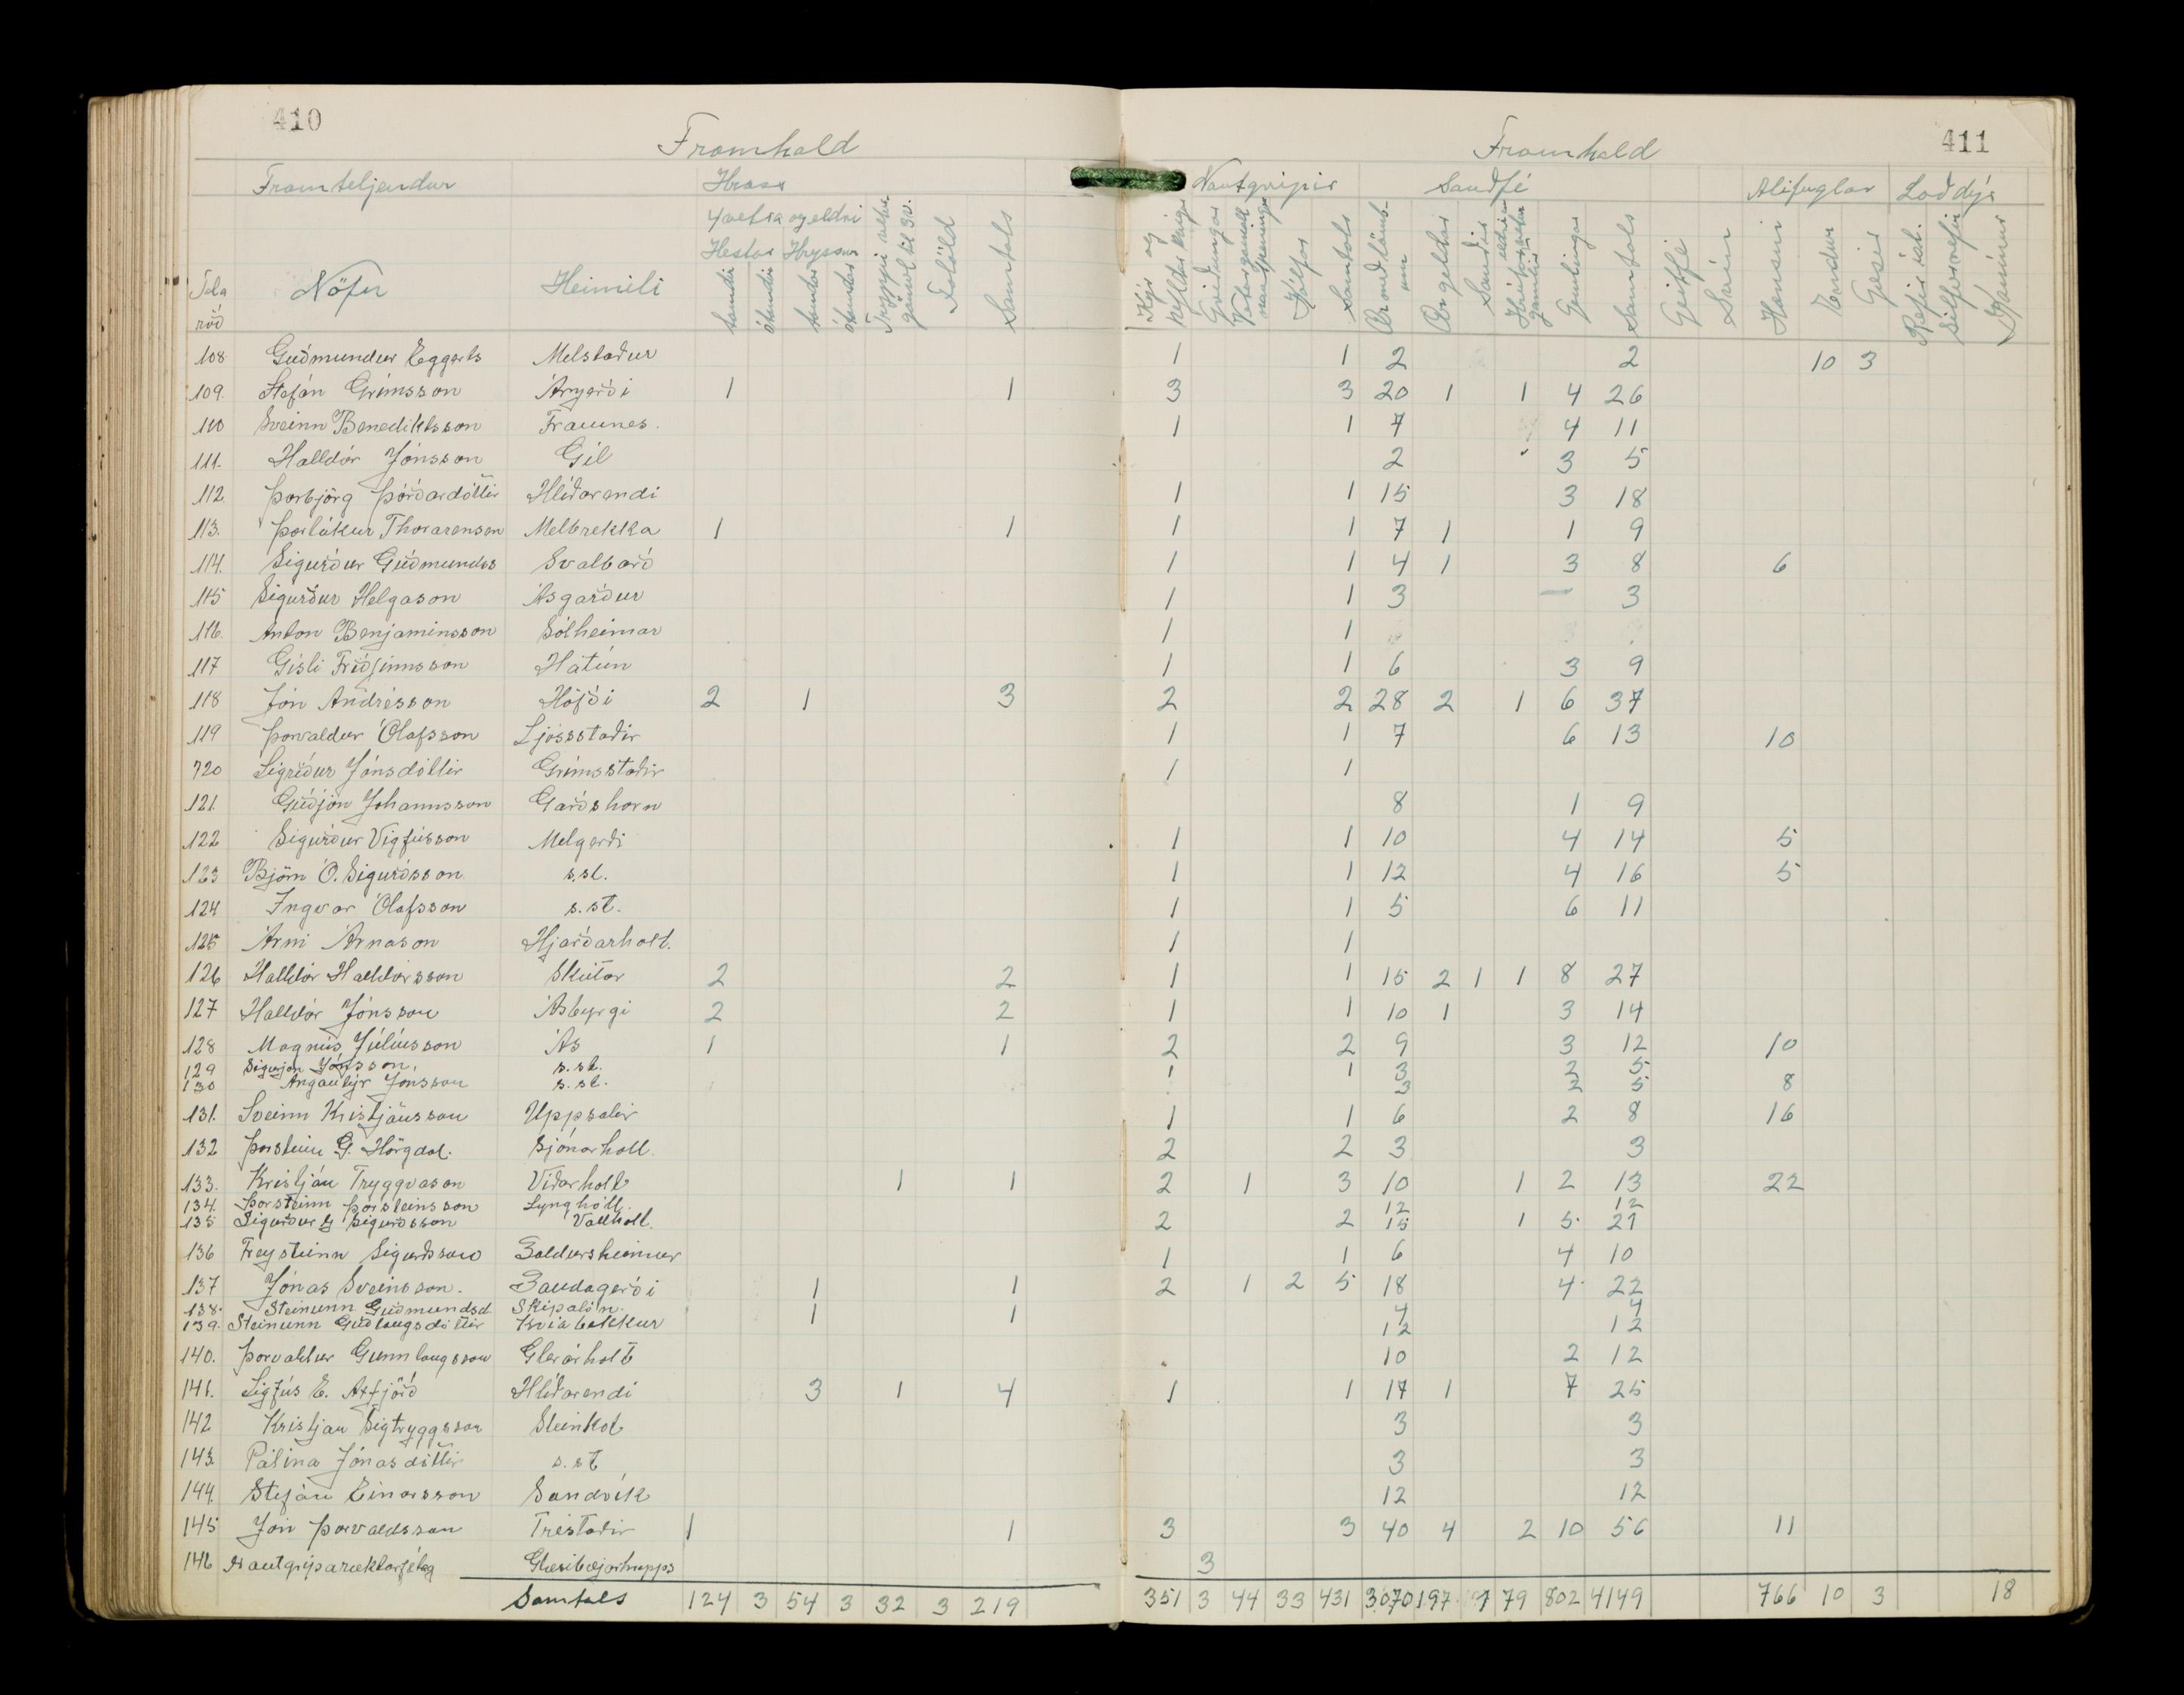 410
Framhald
Framteljendur Hross
4 vetra og eldri
Hestar Hryssur
Tala röð Nöfn Heimili tamdir ótamdir tamdar ótamdar Tryppi Folöld Samtals
411
Framhald
Nautgripir Sauðfé Alifuglar Loðdýr
Kýr og kelfdar kvígur Griðungar Kálfar Samtals Ær með lömbum Ær geldar Sauðir Gemlingar Samtals Geitfé Svín Hænsni Endur Gæsir Refir Silfurrefir Kanínur
108 Guðmundur Eggerts Melstaður 1 1 2 2 10 3
109. Stefán Grímsson Árgerði 1 1 3 3 20 1 1 4 26
110 Sveinn Benediktsson Framnes. 1 1 7 4 11
111. Halldór Jónsson Gil 2 3 5
112 Þorbjörg Þórðardóttir Hlíðarendi 1 1 15 3 18
113. Þorlákur Thorarensen Melbrekka 1 1 1 1 7 1 1 9
114. Sigurður Guðmunds Svalbarð 1 1 4 1 3 8 6
115 Sigurður Helgason Ásgarður 1 1 3 — 3
116. Anton Benjamínsson Sólheimar 1 1
117 Gísli Friðfinnsson Hátún 1 1 6 3 9
118 Jón Andrésson Höfði 2 1 3 2 2 28 2 1 6 37
119 Þorvaldur Ólafsson Ljósstaðir 1 1 7 6 13 10
120 Sigríður Jónsdóttir Grímsstaðir 1 1
121. Guðjón Jóhannsson Garðshorn 8 1 9
122 Sigurður Vigfússon Melgerði 1 1 10 4 14 5
123 Björn Ó. Sigurðsson s.st. 1 1 12 4 16 5
124 Ingvar Ólafsson s.st. 1 1 5 6 11
125 Árni Árnason Hjarðarholt. 1 1
126 Halldór Halldórsson Skútar 2 2 1 1 15 2 1 1 8 27
127 Halldór Jónsson Ásbyrgi 2 2 1 1 10 1 3 14
128 Magnús Júlíusson Ás 1 1 2 2 9 3 12 10
129 Sigurjón Jónsson. s.st. 1 1 3 2 5
130 Angantýr Jónsson s.st. 3 2 5 8
131. Sveinn Kristjánsson Uppsalir 1 1 6 2 8 16
132 Þorsteinn G. Hörgdal. Sjónarhóll. 2 2 3 3
133. Kristján Tryggvason Viðarholt 1 1 2 1 3 10 1 2 13 22
134. Þorsteinn Þorsteinsson Lyngholt. 12 12
135 Sigurður G Sigurðsson Vallholt. 2 2 15 1 5 21
136 Freysteinn Sigurðsson Baldursheimur 1 1 6 4 10
137 Jónas Sveinsson. Bandagerði 1 1 2 1 2 5 18 4 22
138. Steinunn Guðmundsd. Skipalón. 1 1 4 4
139. Steinunn Guðlaugsdóttir Kvíabekkur 12 12
140. Þorvaldur Gunnlaugsson Glerárholt 10 2 12
141. Sigfús E. Axfjörð Hlíðarendi 3 1 4 1 1 17 1 7 25
142 Kristján Sigtryggsson Steinkot 3 3
143 Pálína Jónasdóttir s.st 3 3
144. Stefán Einarsson Sandvík 12 12
145 Jón Þorvaldsson Tréstaðir 1 1 3 3 40 4 2 10 56 11
146 Nautgriparæktarfélag Glæsibæjarhrepps 3
Samtals 124 3 54 3 32 3 219 351 3 44 33 431 3070 197 1 79 802 4149 766 10 3 18